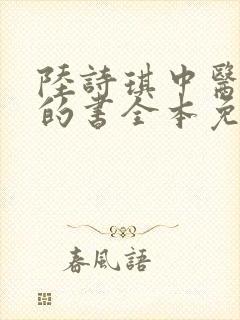 陸詩琪中醫
的書全本免
春風語